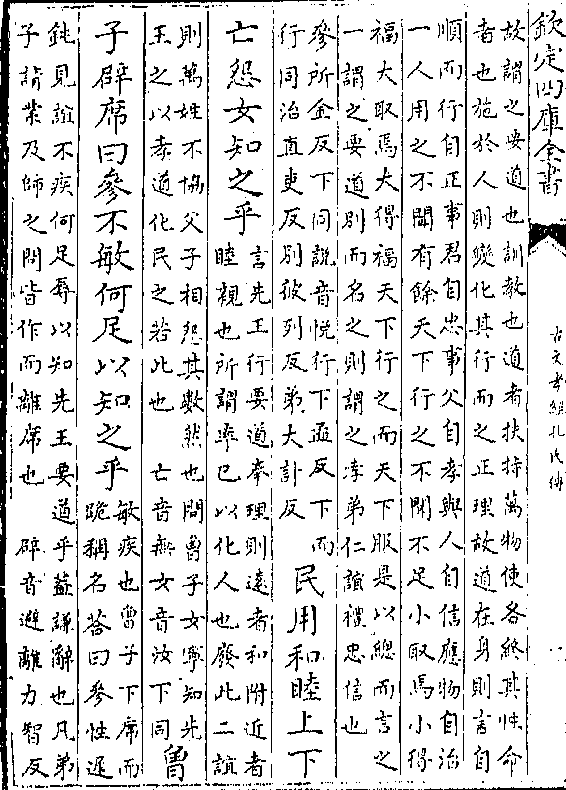 欽定四庫全書
古文孝經孔氏傳
故謂之要道也訓教也道者扶持萬物使各終其性命
者也施於人則變化其行而之正理故道在身則言自
順而行自正事君自忠事父自孝與人自信應物自治
一人用之不聞有餘天下行之不聞不足小取焉小得
福大取焉大得福天下行之而天下服是以總而言之
一謂之要道別而名之則謂之孝弟仁誼禮忠信也
參所金反下同說音悅行下孟反下而
行同治直吏反別彼列反弟大計反
民用和睦上下
亡怨女知之乎
言先王行要道奉理則遠者和附近者
睦親也所謂率己以化人也廢此二誼
則萬姓不協父子相怨其數然也問曾子女寧知先
王之以孝道化民之若此也
亡音無女音汝下同
曾
子辟席曰參不敏何足以知之乎
敏疾也曾子下席而
跪稱名荅曰參性遲
鈍見誼不疾何足辱以知先王要道乎蓋謙辭也凡弟
子請業及師之問皆作而離席也
辟音避離力智反